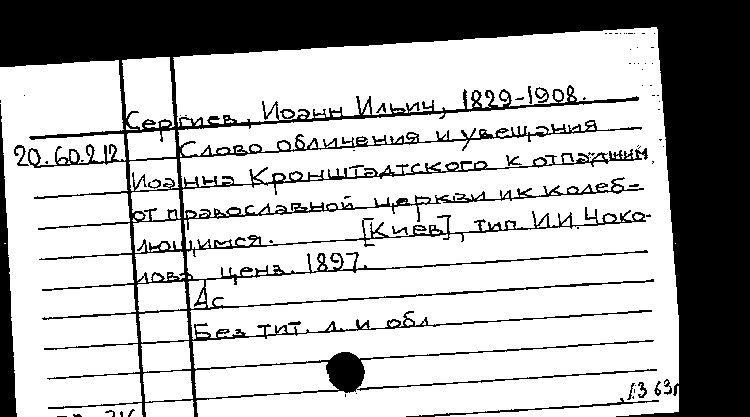 Сергиев, Иоанн Ильич, 1829-1908.
20.60.212 Слово обличения и увещания
Иоанна Кронштадтского к отпадшим
от православной церкви и к колеб=
лющимся. [Киев], тип. И.И. Чоко-
лова, ценз. 1897.
Ас
Без тит. л. и обл.